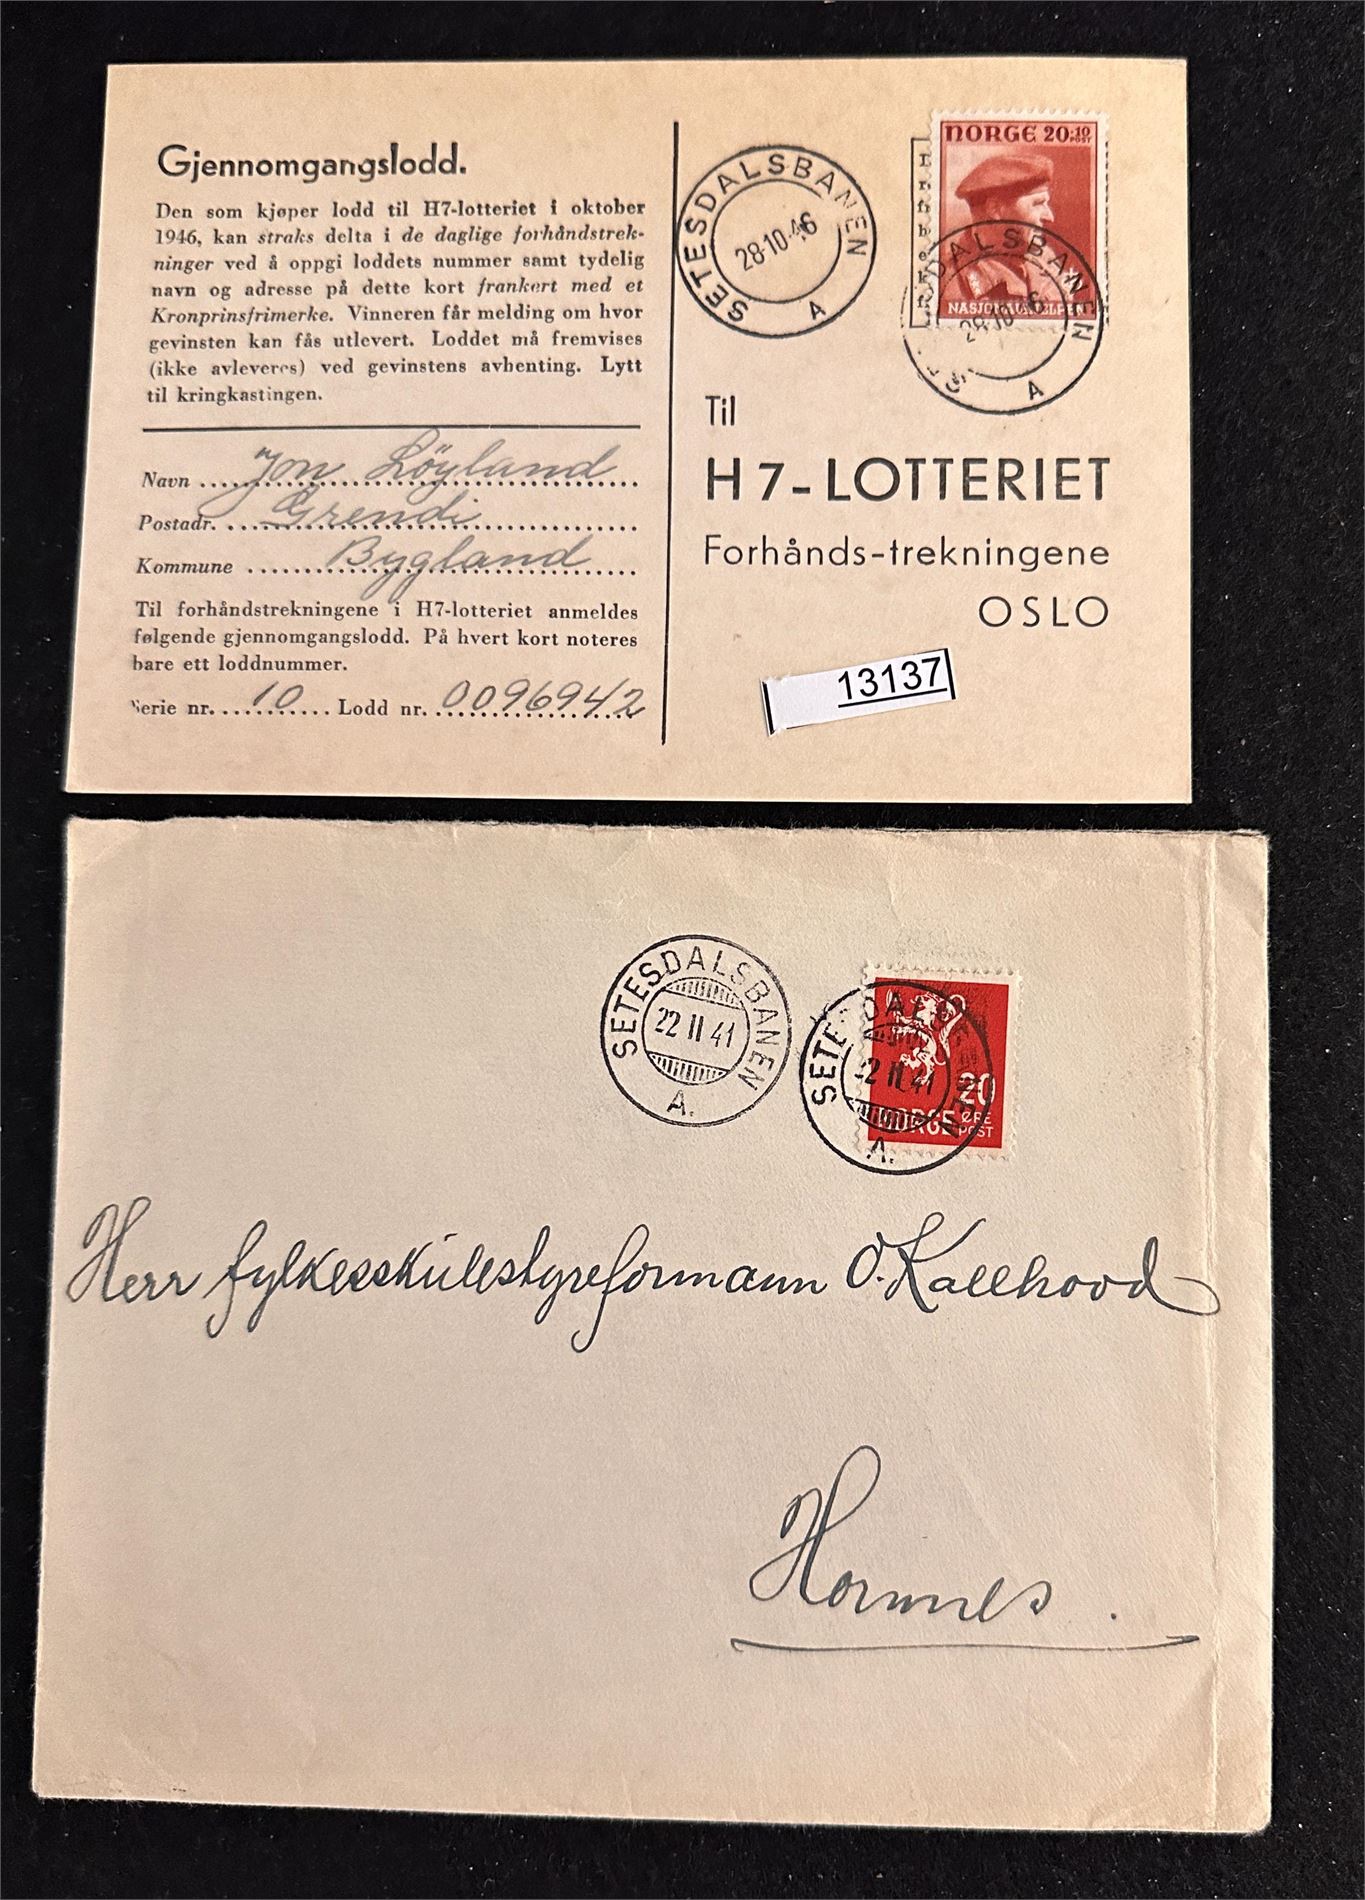 Gjennomgangslodd.
Den som kjøper lodd til H7-lotteriet i oktober
1946, kan straks delta i de daglige forhåndstrek-
ninger ved å oppgi loddets nummer samt tydelig
navn og adresse på dette kort frankert med et
Kronprinsfrimerke. Vinneren får melding om hvor
gevinsten kan fås utlevert. Loddet må fremvises
(ikke avleveres) ved gevinstens avhenting. Lytt
til kringkastingen.
Navn Jon Löyland
Postadr. Grendi
Kommune Bygland
Til forhåndstrekningene i H7-lotteriet anmeldes
følgende gjennomgangslodd. På hvert kort noteres
bare ett loddnummer.
Serie nr. 10 Lodd nr. 0096942
SETESDALSBANEN
28-10-46
A
NORGE 20+10
POST
NASJONALHJELPEN
DALSBANEN
28-10 46
A
Til
H7-LOTTERIET
Forhånds-trekningene
OSLO
13137
SETESDALSBANEN
22 II 41
A.
SETESDALSBANEN
22 II 41
A.
20
NORGE ØRE
POST
Herr fylkesskulestyreformann O. Kallhovd
Hornnes.